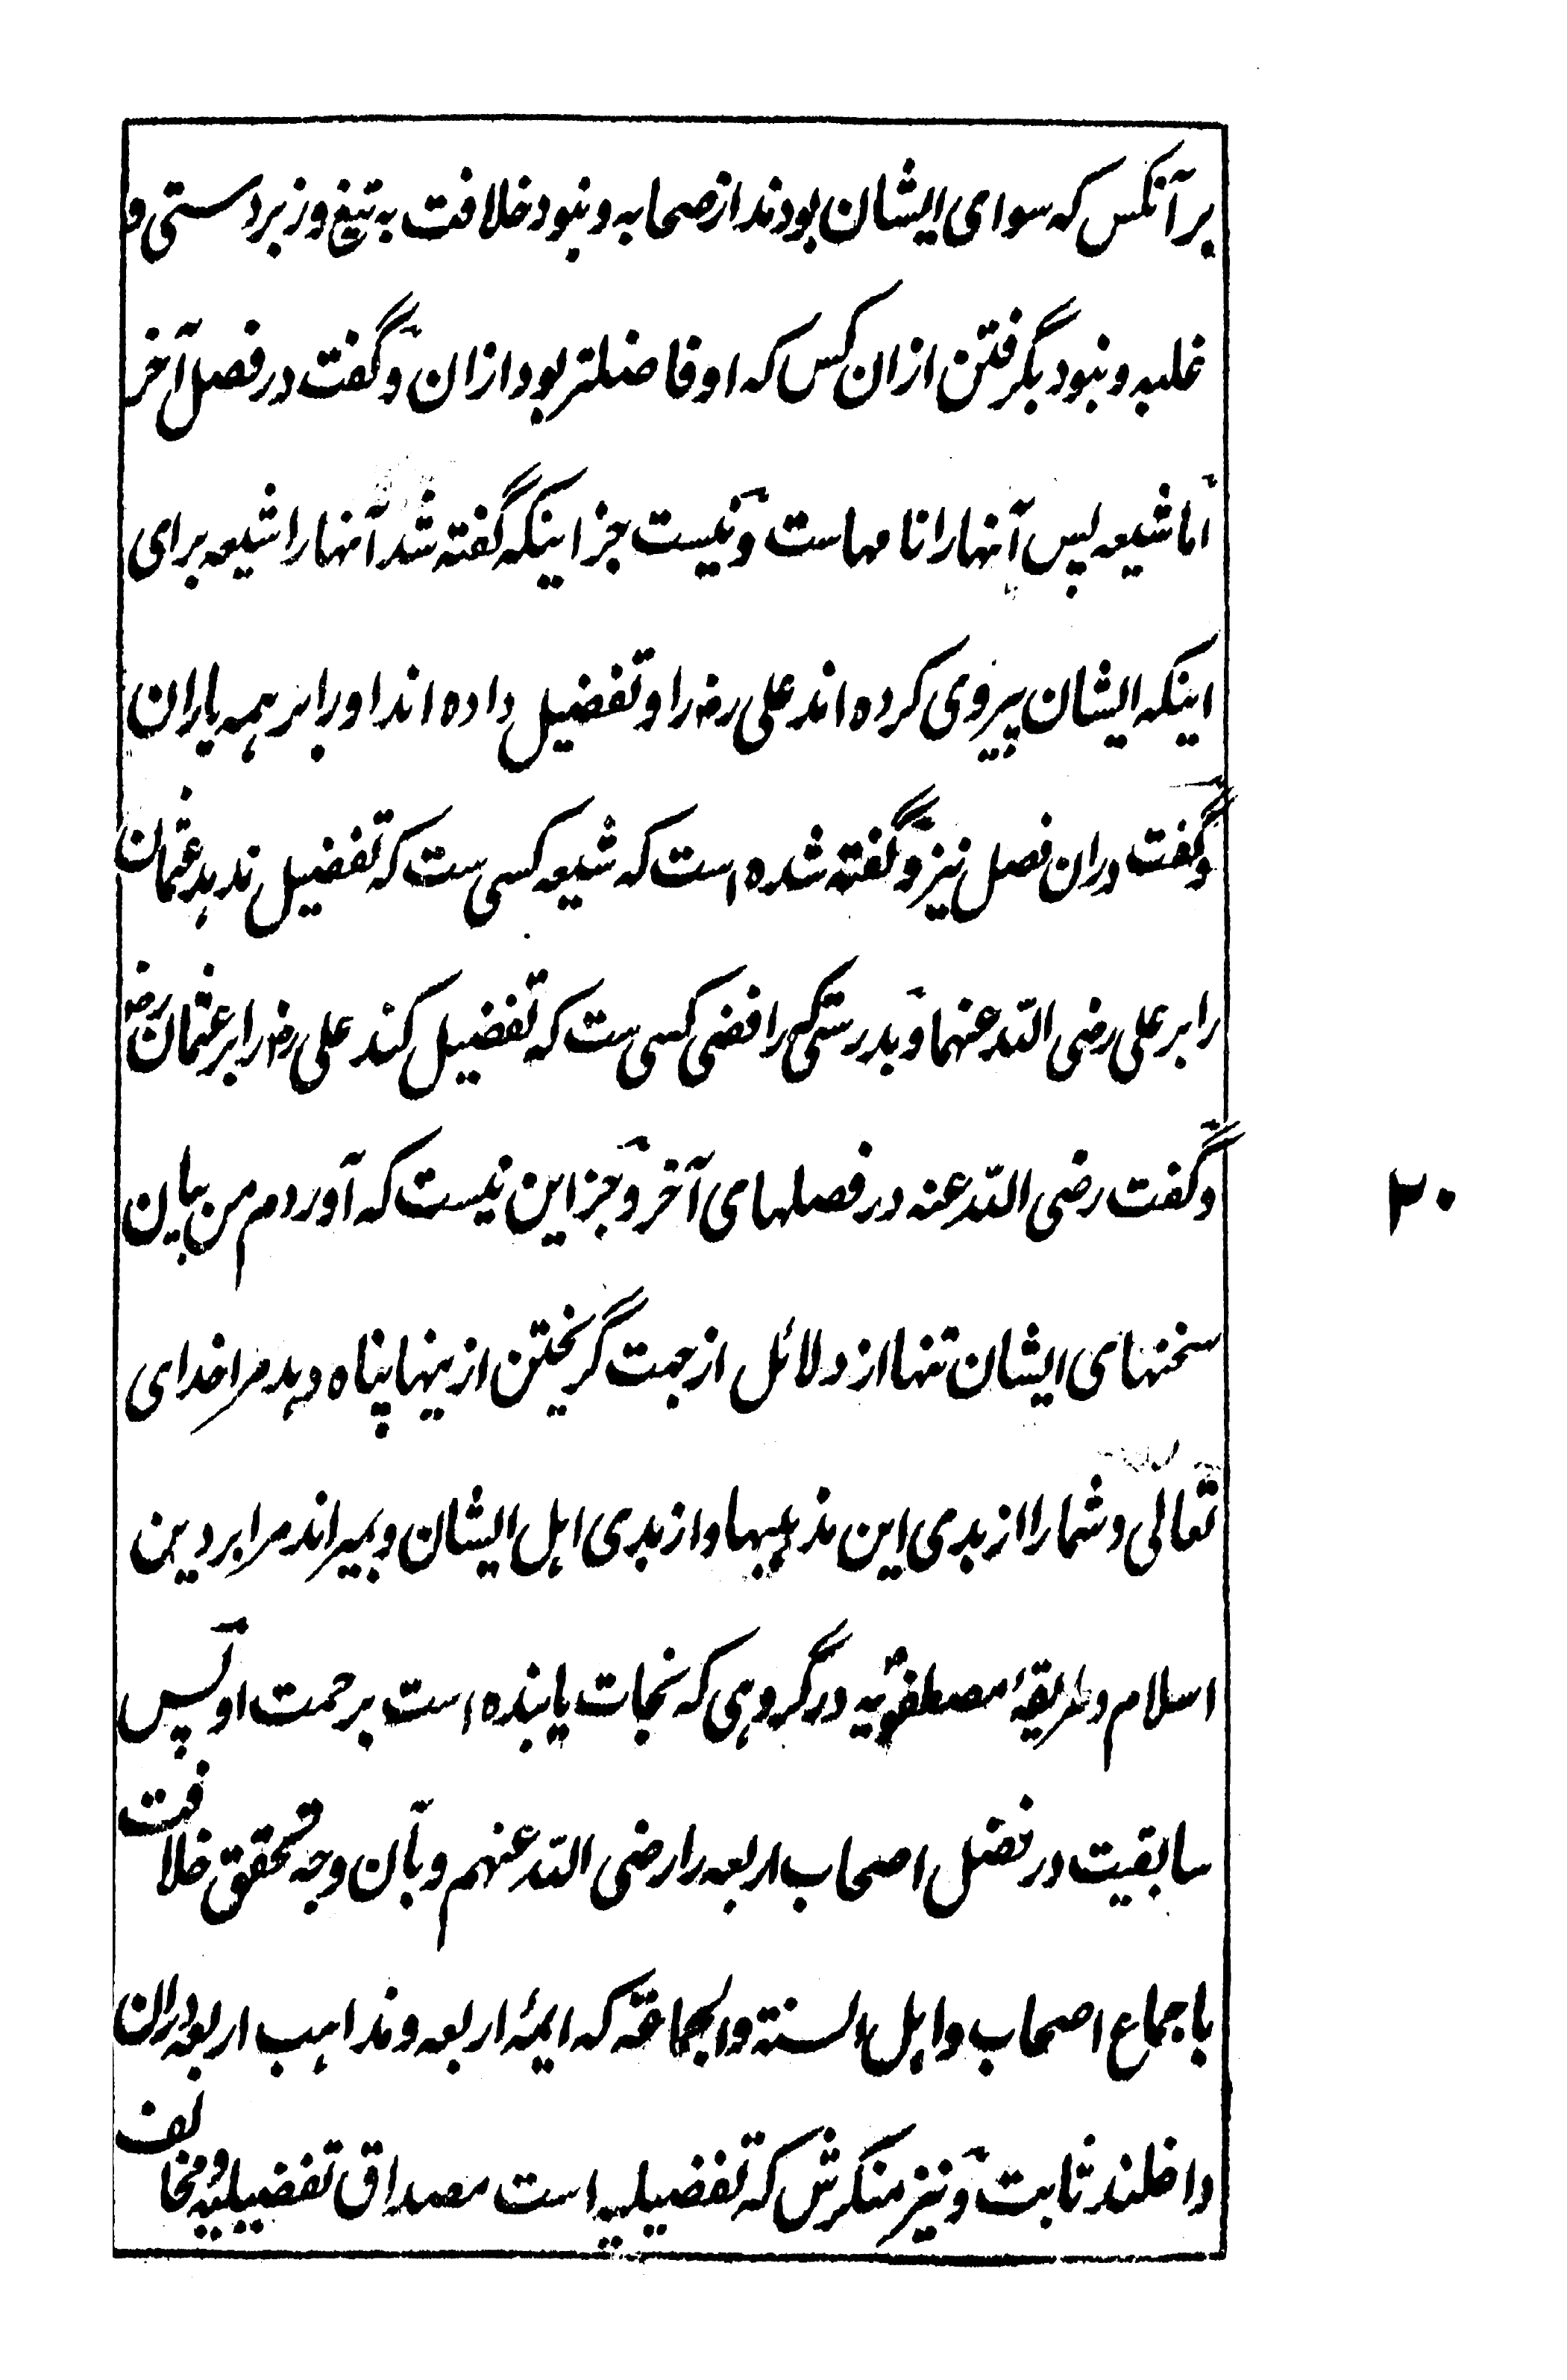 برآنکس که سوای ایشان بودند از صحابه و نبود خلافت به تیغ و زبردستی و
غلبه و نبود بگرفتن ازان کس که او فاضلتر بود ازان و گفت در فصل آخر
اما شیعه پس آنها را نامهاست و نیست جز اینکه گفته شد آنها را شیعه برای
اینکه ایشان پیروی کرده اند علی رض را و تفضیل داده اند او را بر همه یاران
و گفت دران فصل نیز و گفته شده است که شیعه کسی ست که تفضیل ندهد عثمان
را بر علی رضی الله عنهما و بدرستی که رافضی کسی ست که تفضیل کند علی رض را بر عثمان رض
و گفت رضی الله عنه در فصلهای آخر و جز این نیست که آوردم من بیان
۳۰
سخنهای ایشان تنها از دلائل از جهت گریختن ازینها پناه دهد مرا خدای
تعالی و شما را از بدی این مذهبها و از بدی اهل ایشان و بمیراند مرا بر دین
اسلام و طریقهٔ مصطفویه در گروهی که نجات یابنده است برحمت او پس
سابقیت در فضل اصحاب اربعه را رضی الله عنهم و بآن وجه تحقق خلافت
باجماع اصحاب و اهل السنة والجماعة که ایمهٔ اربعه و مذاهب اربعه دران
داخلند ثابت و نیز منکرش که تفضیلیه است مصداق تفضیلیه و مخالف